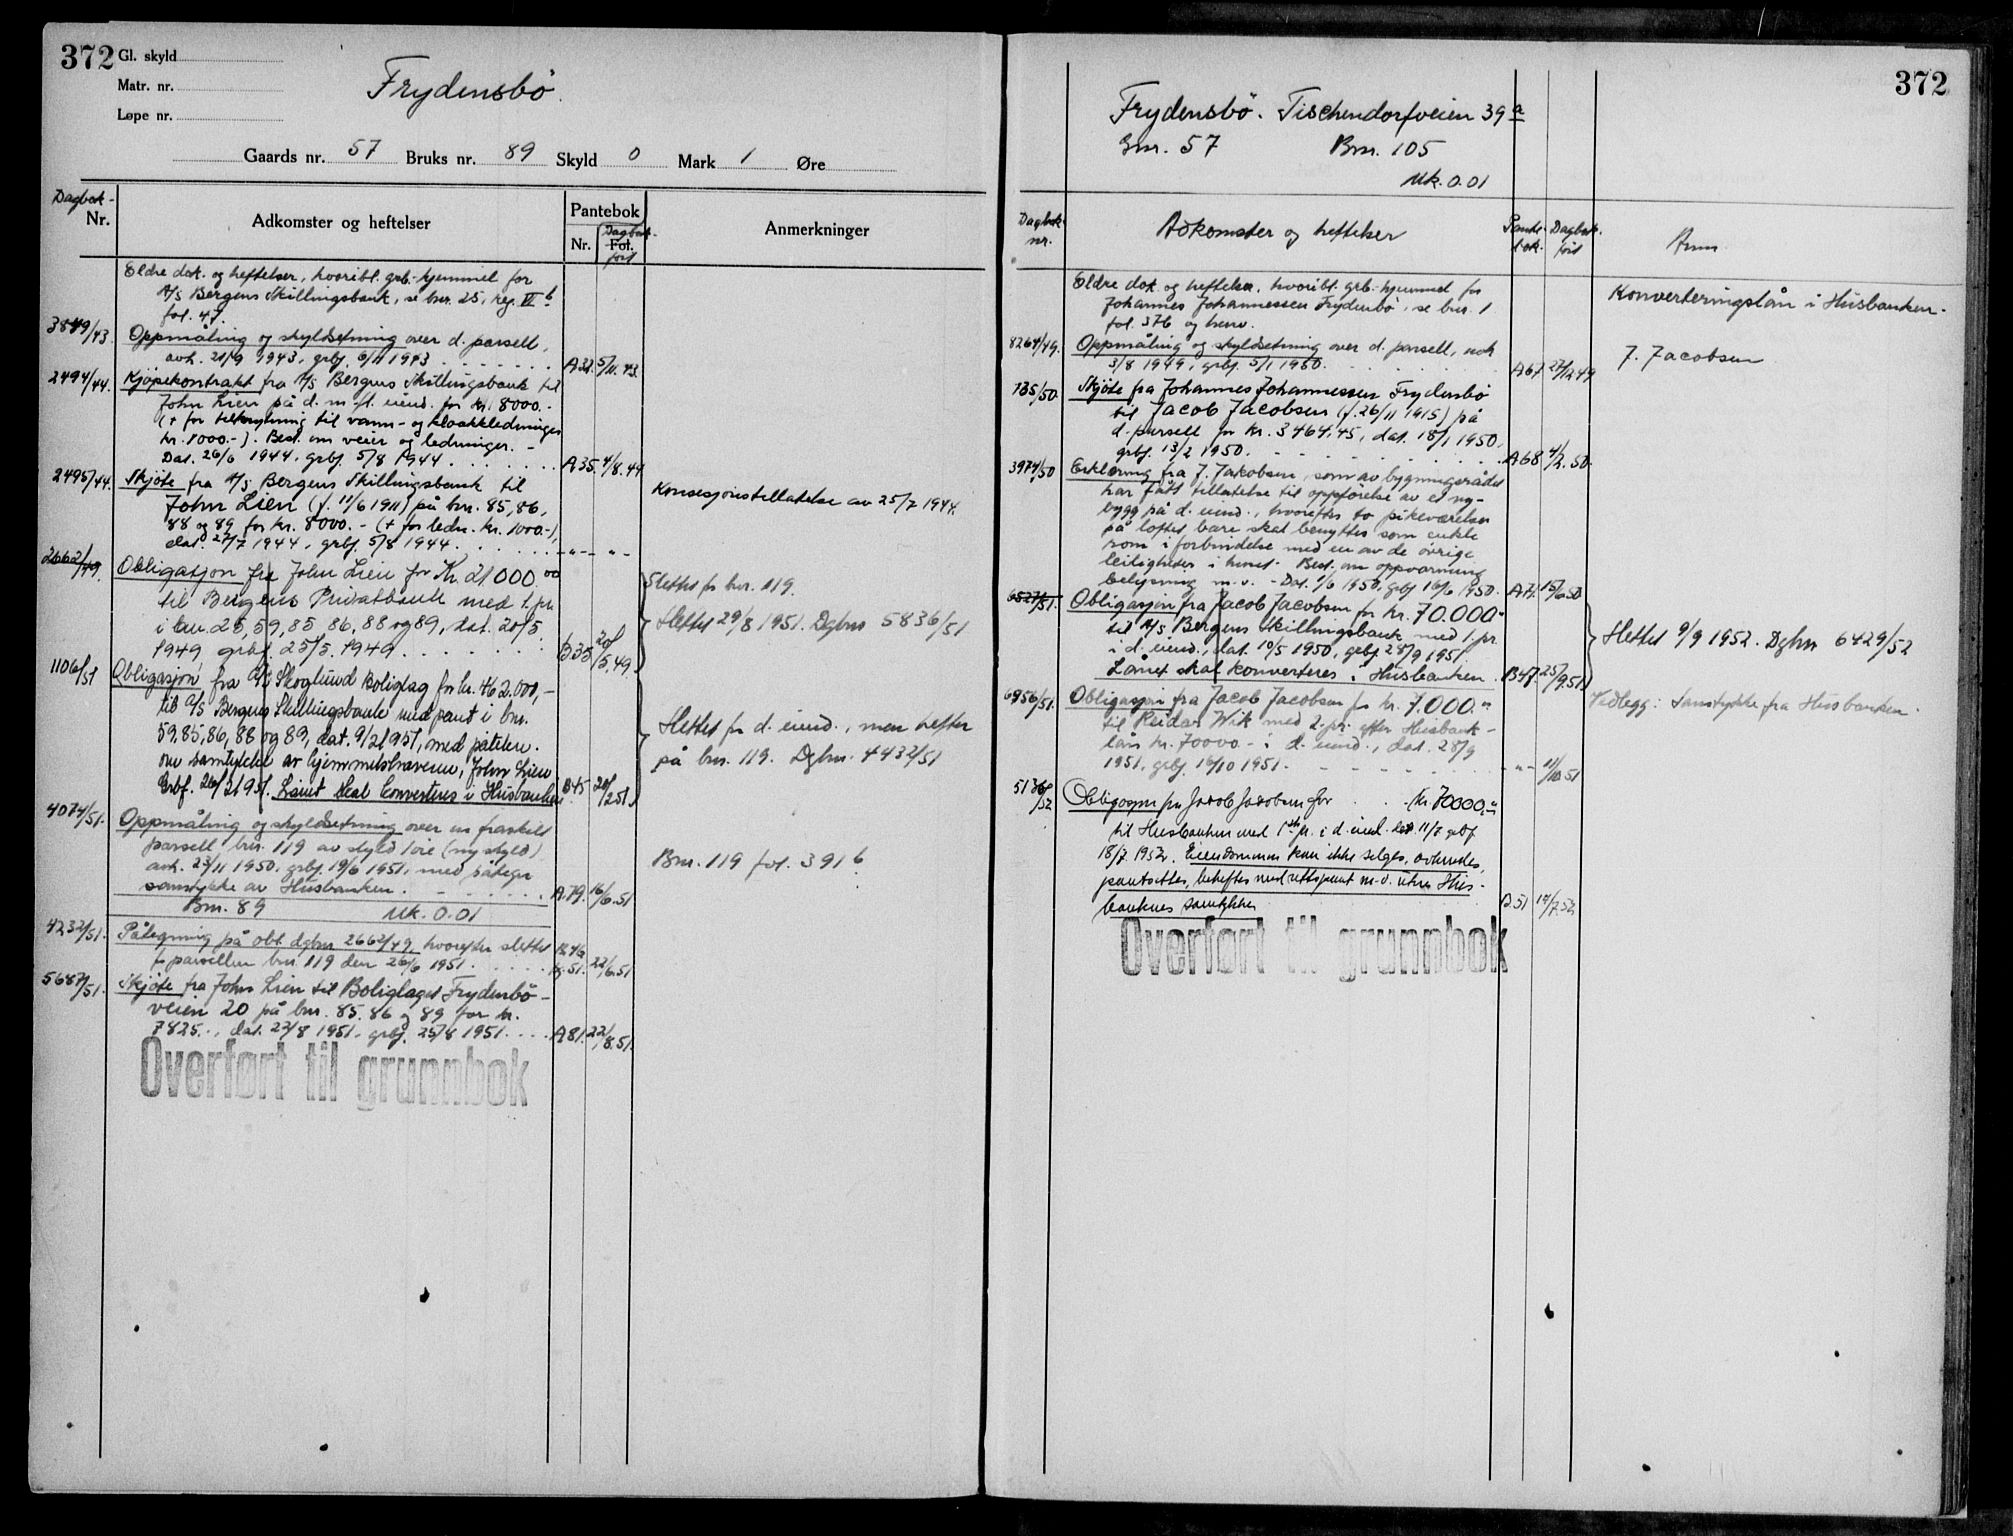 372 Gl. skyld
Matr. nr.
Løpe nr.
Frydensbö.
Gaards nr. 57 Bruks nr. 89 Skyld 0 Mark 1 Øre
Dagbok-
Nr.
Adkomster og heftelser
Pantebok
Nr.
Dagbok-
Fol.
ført
Anmerkninger
Eldre dok. og heftelser, hvoribl. grb.-hjemmel for
A/S Bergens Skillingsbank, se bnr. 25, reg. VI b
fol. 47.
3849/43. Oppmåling og skyldsetning over d. parsell,
avh. 21/9 1943, grbf. 6/11 1943 A 32 5/11. 43.
2494/44. Kjöpekontrakt fra A/S Bergens Skillingsbank til
John Lien på d. m. fl. eiend. for kr. 8000.-
(+ for tilknytning til vann- og kloakkledninger
kr. 1000.-). Best. om veier og ledninger. -
Dat. 26/6 1944, grbf. 5/8 1944 A 35. 4/8. 44
2495/44. Skjöte fra A/S Bergens Skillingsbank til
John Lien (f. 11/6 1911) på bnr. 85, 86,
88 og 89 for kr. 8000.- (+ for ledn. kr. 1000.-),
dat. 27/7 1944, grbf. 5/8 1944. -"- -"-
Konsesjonstillatelse av 25/7 1944.
2662/49. Obligasjon fra John Lien for Kr. 21 000.00
til Bergens Privatbank med 1. pr.
i bnr. 25, 59, 85 86, 88 og 89, dat. 20/5.
1949 grbf. 25/5. 1949 B 35 20/5. 49.
Slettet for bnr. 119.
Slettet 29/8 1951. Dgbnr 5836/51
1106/51 Obligasjon fra A/L Skoglund Boliglag for kr. 462.000,-
til A/S Bergens Skillingsbank med pant i bnr.
59, 85, 86, 88 og 89, dat. 9/2 1951, med påtegn.
om samtykke av hjemmelshaveren, John Lien
Grbf. 26/2 1951. Lånet skal konverteres i Husbanken B45 20/2 51.
Slettet for d. eiend., men hefter
på bnr. 119. Dgbnr. 4432/51
4074/51. Oppmåling og skyldsetning over en fraskilt
parsell bnr. 119 av skyld 1 öre (ny skyld)
avh. 23/11 1950, grbf. 19/6 1951, med påtegn
samtykke av Husbanken. A.79. 16/6.51
Bnr. 119 fol. 391 b.
Bnr. 89 Mk. 0.01
4232/51. Påtegning på obl. dgbnr 2662/49, hvorefter slettet
for parsellen bnr. 119 den 26/6 1951. B.46 22/6.51
5687/51. Skjöte fra John Lien til Boliglaget Frydenbö-
veien 20 på bnr. 85, 86 og 89 for kr.
7825.-, dat. 22/8 1951, grbf. 25/8 1951. A 81. 22/8.51.
Overført til grunnbok
372
Frydensbö. Tischendorfveien 39 a
Gnr. 57 Bnr. 105
Mk. 0.01
Dagbok
nr.
Adkomster og heftelser
Pante-
bok.
Dagbok.
ført
Anm.
Eldre dok. og heftelser, hvoribl. grb.-hjemmel for
Johannes Johannessen Frydenbö, se bnr. 1
fol. 376 og henv.
Konverteringslån i Husbanken.
8264/49. Oppmåling og skyldsetning over d. parsell, avh
3/8 1949, grbf. 5/1 1950. A 67 27/12 49
J. Jacobsen
735/50. Skjöte fra Johannes Johannessen Frydensbö
til Jacob Jacobsen (f. 26/11 1915) på
d. parsell for kr. 3464.45, dat. 18/1 1950,
grbf. 13/2 1950. A 68 4/2. 50.
3974/50 Erklæring fra J. Jakobsen, som av bygningsrådet
har fått tillatelse til oppførelse av et ny-
bygg på d. eiend., hvorefter to pikeværelser
på loftet bare skal benyttes som enkle
rom i forbindelse med en av de övrige
leiligheter i huset. Best. om oppvarming
belysning m.v. - Dat. 1/6 1950, grbf 16/6 1950. A 71. 15/6 50
6527/51. Obligasjon fra Jacob Jacobsen for kr. 70.000.-
til A/S Bergens Skillingsbank med 1. pr.
i d. eiend., dat. 10/5 1950, grbf 28/9 1951
Lånet skal konverteres i Husbanken. B47. 25/9.51.
Slettet 9/9 1952. Dgbnr 6429/52
6956/51. Obligasjon fra Jacob Jacobsen for kr. 7.000.-
til Reidar Wik med 2. pr. efter Husbank-
lån kr. 70000.- i d. eiend., dat. 28/9
1951, grbf. 16/10 1951. -"- 11/10 51
Vedlegg: Samtykke fra Husbanken.
5136/52 Obligasjon fra Jacob Jacobsen for Kr. 70000,-
til Husbanken med 1ste pr. i d. eiend. dat. 11/7 grbf
18/7 1952. Eiendommen kan ikke selges, avhendes,
pantsettes, beheftes med rettspant m.v. uten Hus-
bankens samtykke B.51 14/7 52
Overført til grunnbok